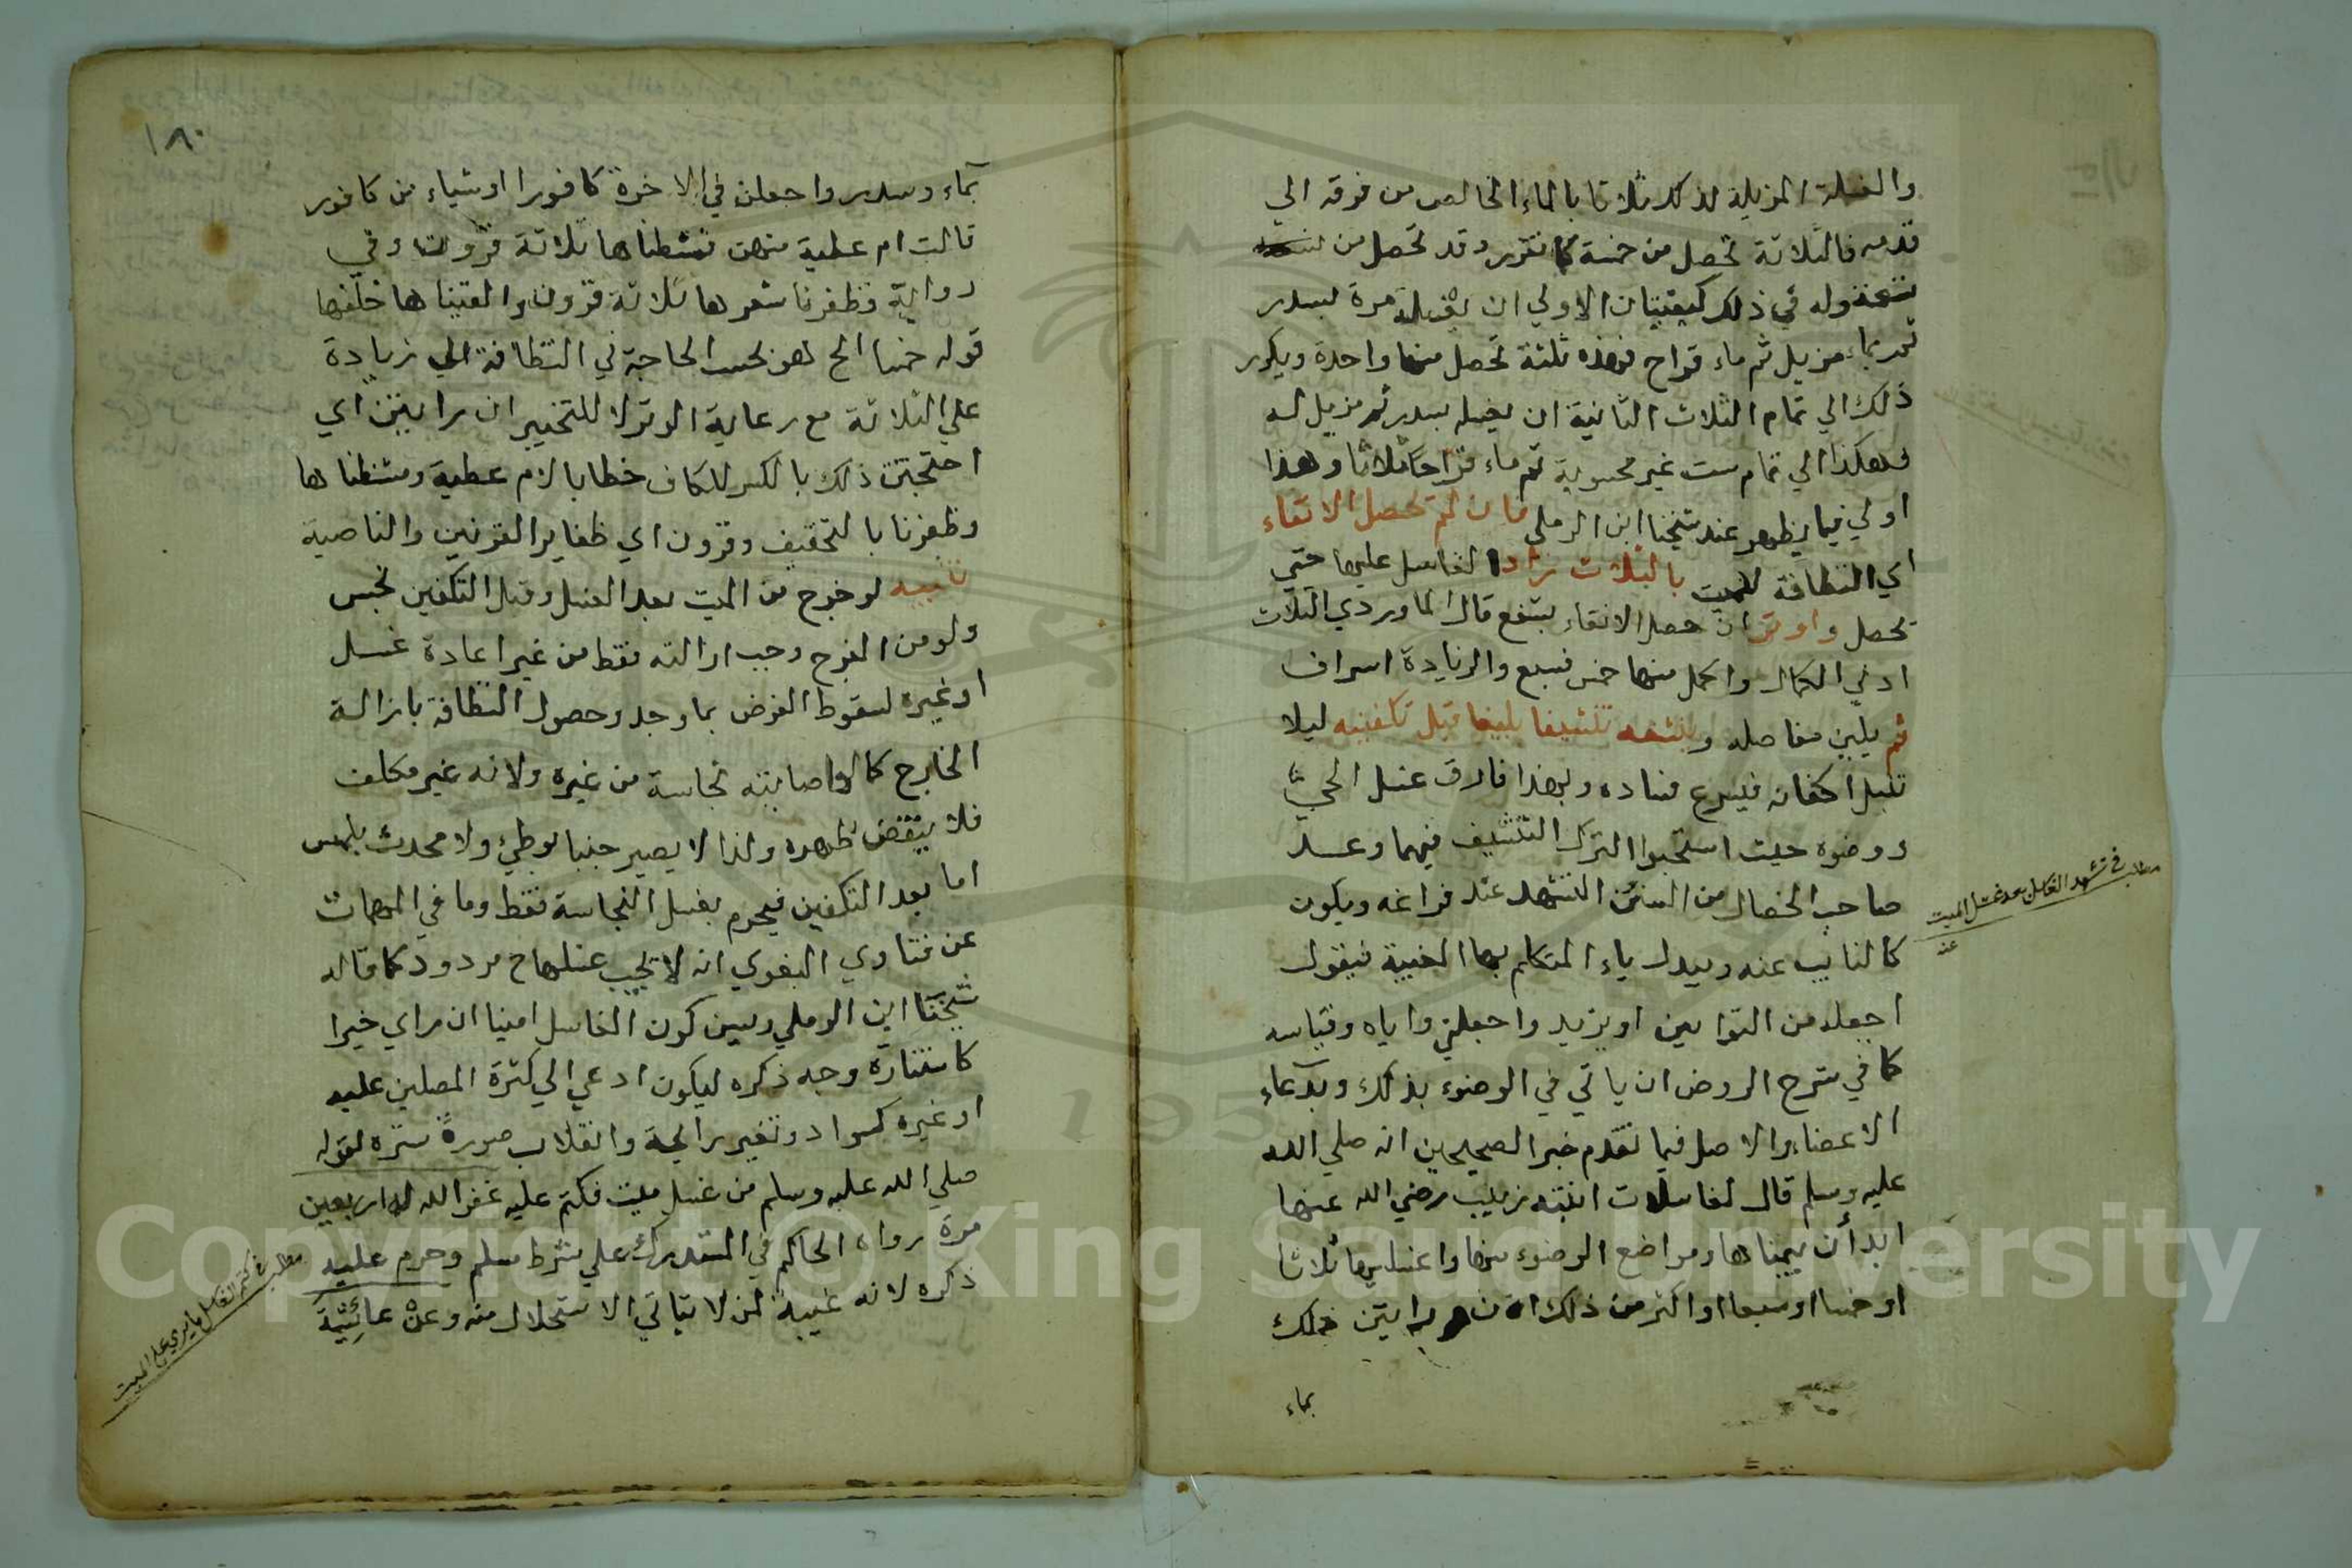 والغسلة المزيلة لذلك ثلاثا بالماء الخالص من فرقه الي
قدمه فالثلاثة تحصل من خمسة كما تقرر وقد تحصل من
تسعة وله في ذلك كيفيتان الاولي ان يغسله مرة بسدر
ثم بماء مزيل ثم ماء قراح فهذه ثلثة تحصل منها واحدة ويكرر
ذلك الي تمام الثلاث الثانية ان يغسله بسدر ثم مزيل له
وهكذا الي تمام ست غير محسوبة ثم ماء قراحا ثلاثا وهذا
اولي فيما يظهر عند شيخنا ابن الرملي فان لم تحصل الانقاء
اي النظافة للميت بالثلاث زاد الغاسل عليها حتي
تحصل واوتر ان حصل الانقاء بشفع قال الماوردي الثلاث
ادني الكمال واكمل منها خمس فسبع والزيادة اسراف
ثم يلين مفاصله وينشفه تنشيفا بليغا قبل تكفينه ليلا
تبتل اكفانه فيسرع فساده وبهذا فارق غسل الحي
ووضوه حيث استحبوا الترك التنشيف فيهما وعد
صاحب الخصال من السنن التشهد عند فراغه ويكون
كالنايب عنه ويبدل ياء المتكلم بهاء الغيبة فيقول
اجعله من التوابين او يزيد واجعلني واياه وقياسه
كما في شرح الروض ان ياتي في الوضوء بذلك وبدعاء
الاعضاء والاصل فيما تقدم خبر الصحيحين انه صلي الله
عليه وسلم قال لغاسلات ابنته زينب رضي الله عنها
ابدأن بميمناها ومواضع الوضوء منها واغسلنها ثلاثا
او خمسا او سبعا او اكثر من ذلك ان رايتن ذلك
بماء
مطلب في تشهد الغاسل بعد غسل الميت
عنه
١٨٠
بماء وسدر واجعلن في الاخرة كافورا او شياء من كافور
قالت ام عطية منهن فمشطناها ثلاثة قرون وفي
رواية فظفرنا شعرها ثلاثة قرون والقيناها خلفها
قوله خمسا الح هو بحسب الحاجة في النظافة الي زيادة
علي الثلاثة مع رعاية الوتر لا للتخيير ان رايتن اي
احتجتن ذلك بالكسر للكاف خطابا لام عطية ومشطناها
وظفرنا بالتخفيف وقرون اي ظفاير القرنين والناصية
تنبيه لو خرج من الميت بعد الغسل وقبل التكفين نجس
ولو من الفرج وجب ازالته فقط من غير اعادة غسل
او غيره لسقوط الفرض بما وجد وحصول النظافة بازالة
الخارج كما لو اصابته نجاسة من غيره ولانه غير مكلف
فلا ينتقض طهره ولذا لا يصير جنبا بوطئ ولا محدث بلمس
اما بعد التكفين فيحرم بغسل النجاسة فقط وما في المهمات
عن فتاوي البغوي انه لا يجب غسلها ح مردود كما قاله
شيخنا ابن الرملي وسن كون الغاسل امينا ان راي خيرا
كاستنارة وجه ذكره ليكون ادعي الي كثرة المصلين عليه
او غيره كسواد وتغير رائحة وانقلاب صورة ستره لقوله
صلي الله عليه وسلم من غسل ميت فكتم عليه غفر الله له اربعين
مرة رواه الحاكم في المستدرك علي شرط مسلم وحرم عليه
ذكره لانه غيبة لمن لا يتاتي الاستحلال منه وعن عائشة
مطلب في كتم الغاسل ما يري علي الميت
Copyright © King Saud University